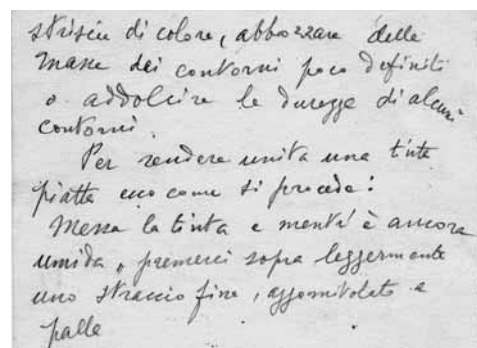 striscie di colore, abbozzare delle
masse dei contorni poco definiti
o addolcire le durezze di alcuni
contorni.
Per rendere unita una tinta
piatta ecco come si procede:
Messa la tinta e mentr'è ancora
umida, premerci sopra leggermente
uno straccio fine, aggomitolato a
palla